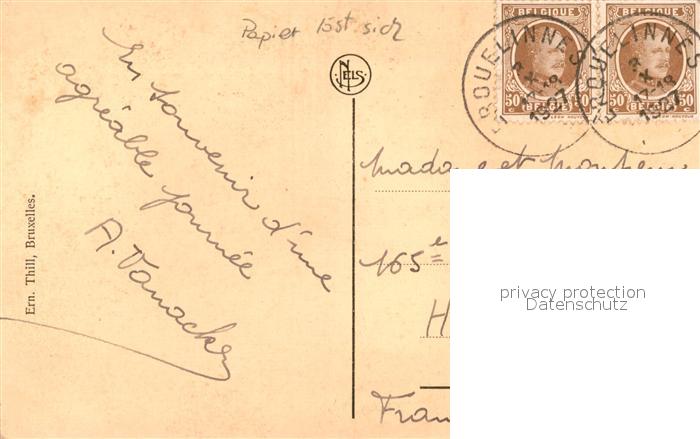 Papier löst sich
En souvenir d'une
agréable journée
A. Vanacker
Ern. Thill, Bruxelles.
NELS
BELGIQUE BELGIQUE
50 50 50 50
BELGIË BELGIË
ERQUELINNES ERQUELINNES
17-18 17-18
1927 1927
Madame et Monsieur
165e
H
Fran
privacy protection
Datenschutz